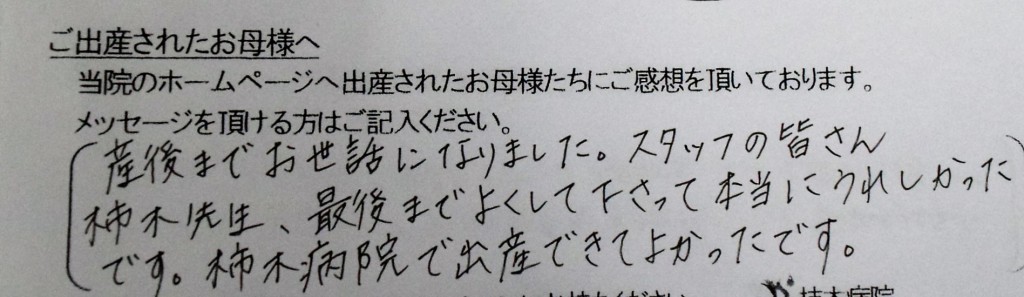 ご出産されたお母様へ
当院のホームページへ出産されたお母様たちにご感想を頂いております。
メッセージを頂ける方はご記入ください。
産後までお世話になりました。スタッフの皆さん
柿木先生、最後までよくして下さって本当にうれしかった
です。柿木病院で出産できてよかったです。
柿木病院